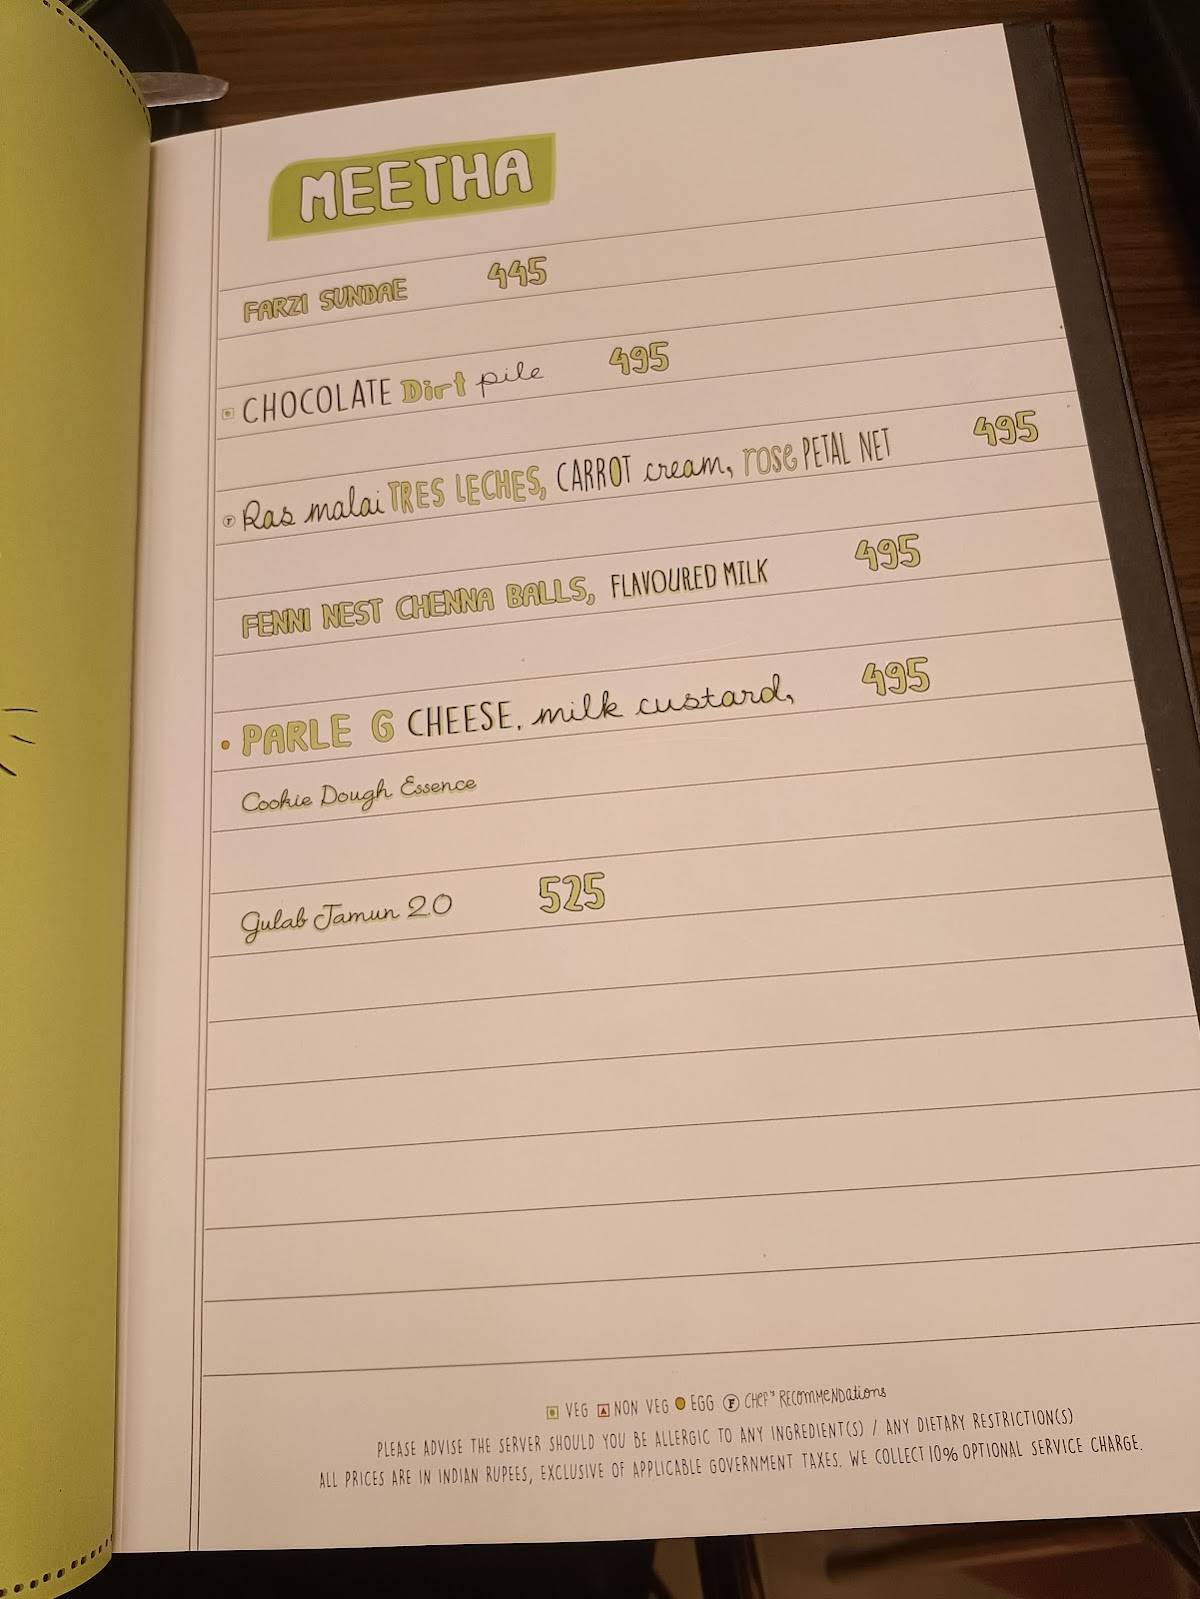 MEETHA
FARZI SUNDAE 445
CHOCOLATE Dirt pile 495
F Ras malai TRES LECHES, CARROT cream, rose PETAL NET 495
FENNI NEST CHENNA BALLS, FLAVOURED MILK 495
PARLE G CHEESE, milk custard, 495
Cookie Dough Essence
Gulab Jamun 2.0 525
VEG NON VEG EGG F CHEF'S RECOMMENDATIONS
PLEASE ADVISE THE SERVER SHOULD YOU BE ALLERGIC TO ANY INGREDIENT(S) / ANY DIETARY RESTRICTION(S)
ALL PRICES ARE IN INDIAN RUPEES, EXCLUSIVE OF APPLICABLE GOVERNMENT TAXES. WE COLLECT 10% OPTIONAL SERVICE CHARGE.